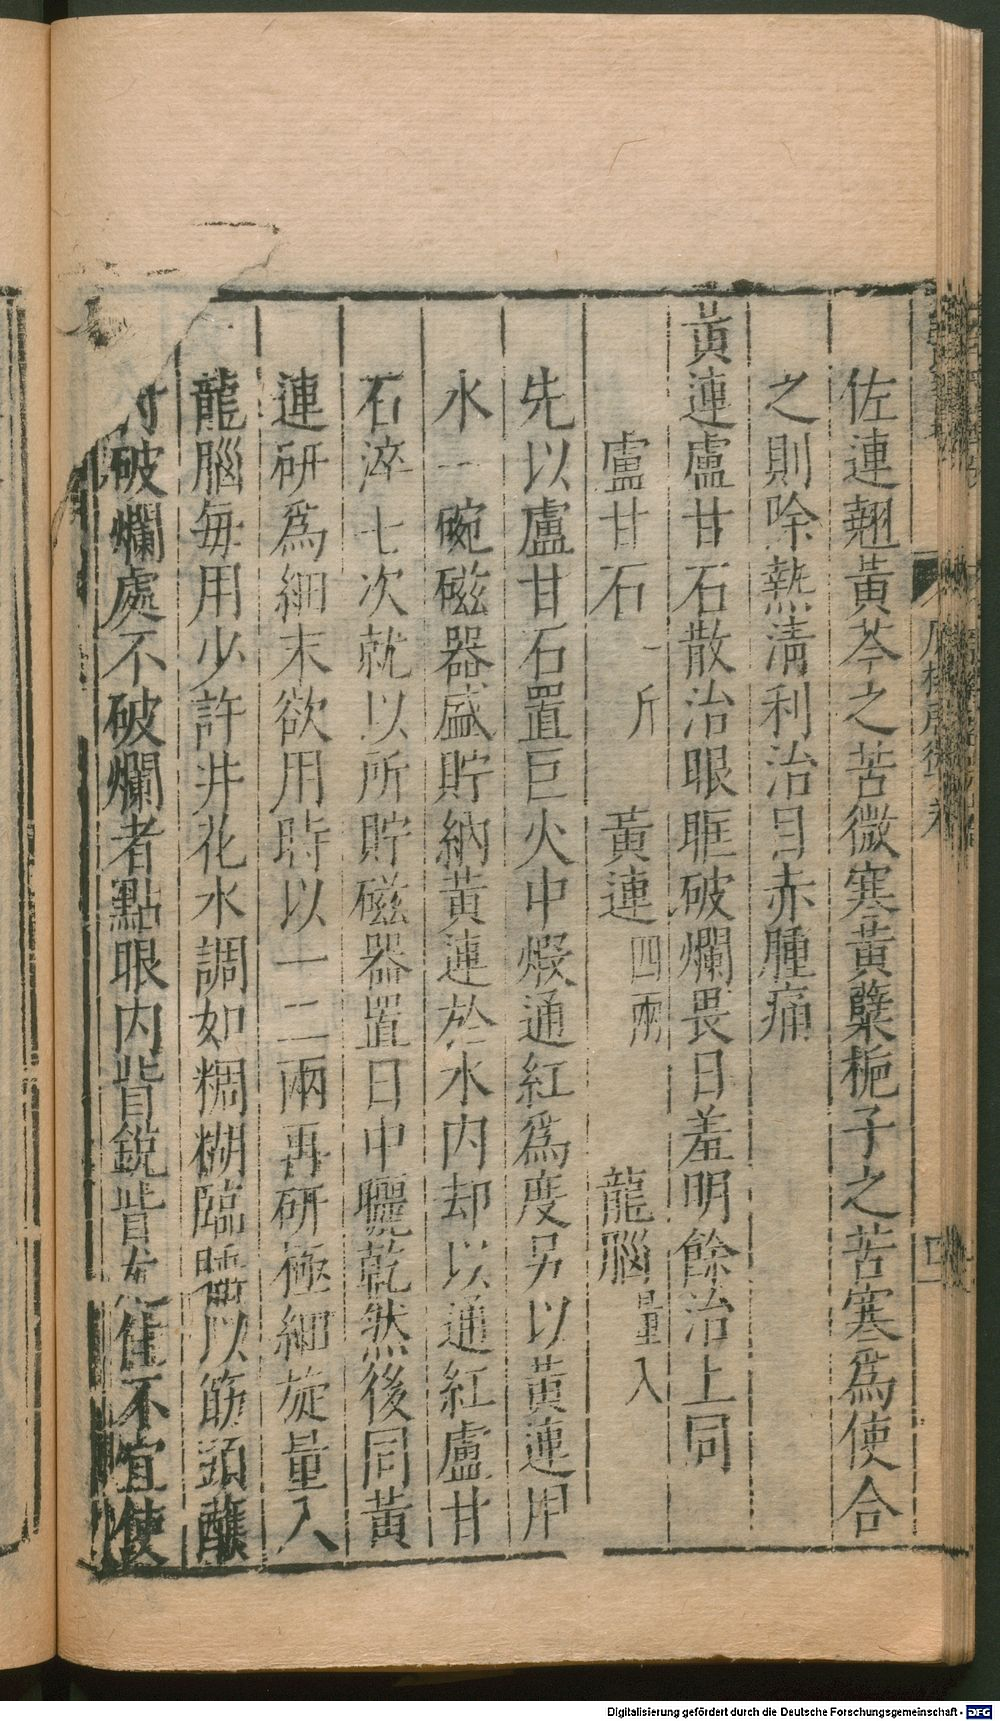 佐連翹黃芩之苦微寒黃蘗梔子之苦寒爲使合
之則除熱淸利治目赤腫痛
黃連盧甘石散治眼眶破爛畏日羞明餘治上同
盧甘石一斤 黃連四兩 龍腦量入
先以盧甘石置巨火中煆通紅爲度另以黃連用
水一碗磁器盛貯納黃連於水內却以通紅盧甘
石淬七次就以所貯磁器置日中曬乾然後同黃
連硏爲細末欲用時以一二兩再硏極細旋量入
龍腦每用少許井花水調如稠糊臨睡以筋頭蘸
破爛處不破爛者點眼內眥銳眥尤佳不宜使
Digitalisierung gefördert durch die Deutsche Forschungsgemeinschaft - DFG